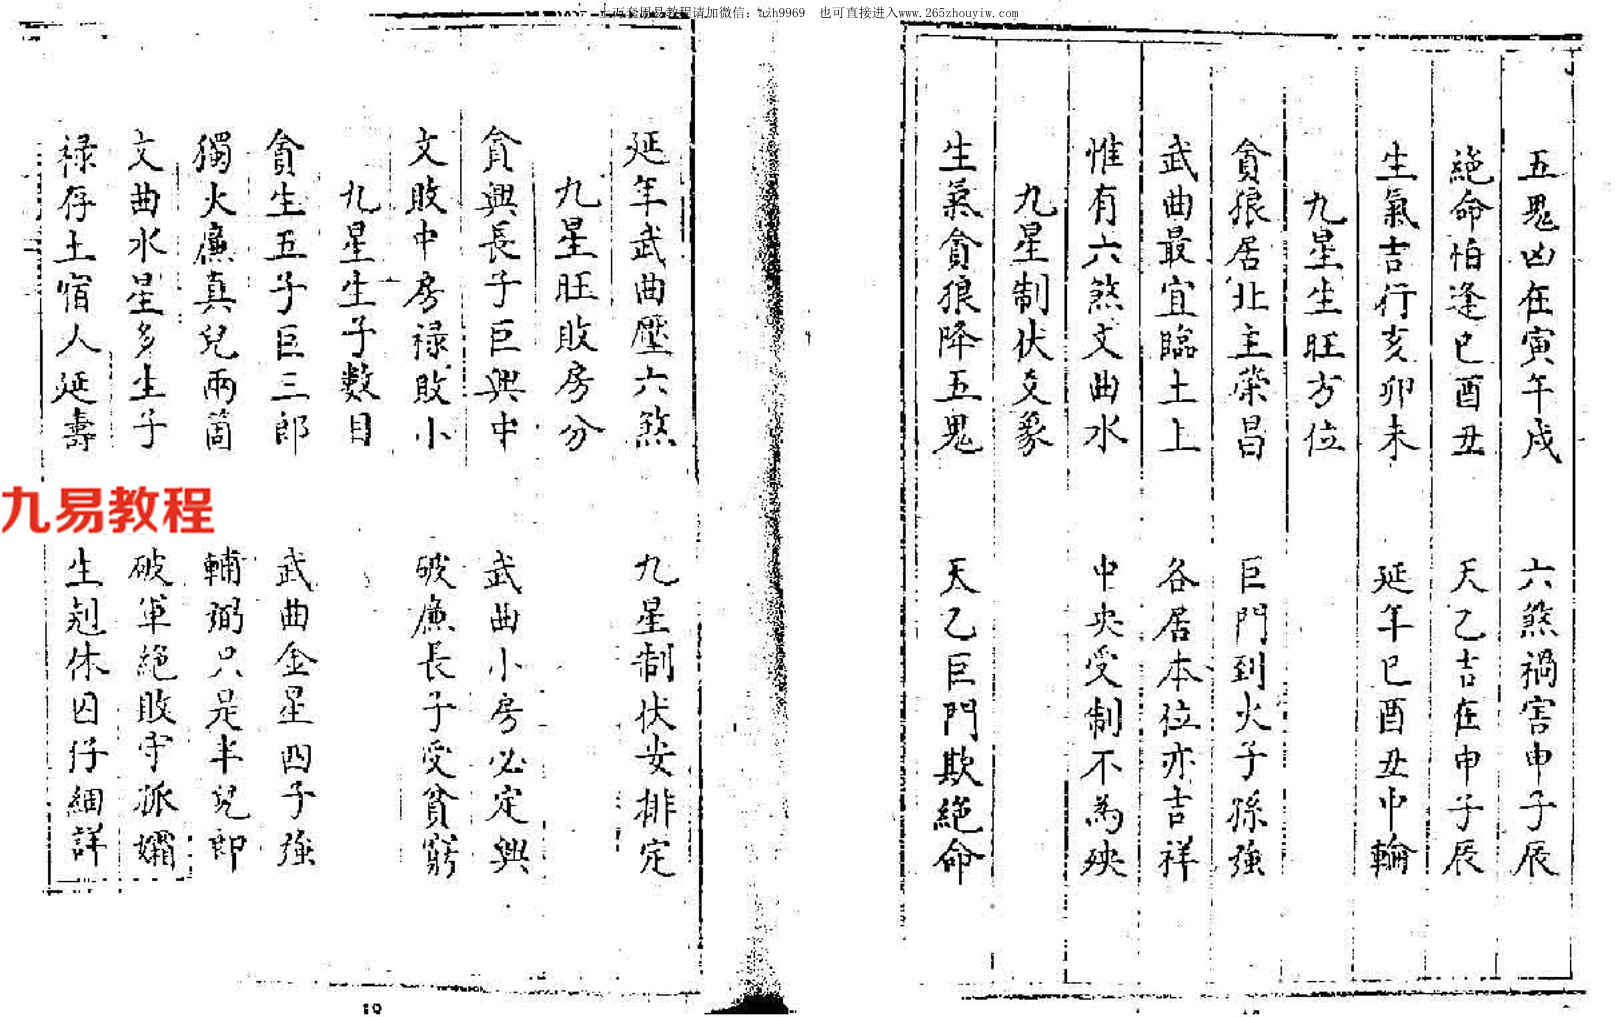 五鬼凶在寅午戌　六煞禍害申子辰
絕命怕逢巳酉丑　天乙吉在申子辰
生氣吉行亥卯未　延年巳酉丑中輪
九星生旺方位
貪狼居北主榮昌　巨門到火子孫強
武曲最宜臨土上　各居本位亦吉祥
惟有六煞文曲水　中央受制不為殃
九星制伏爻象
生氣貪狼降五鬼　天乙巨門欺絕命
延年武曲壓六煞　九星制伏安排定
九星旺敗房分
貪興長子巨興中　武曲小房必定興
文敗中房祿敗小　破廉長子受貧窮
九星生子數目
貪生五子巨三郎　武曲金星四子強
獨火廉真兒兩箇　輔弼只是半兒郎
文曲水星多生子　破軍絕敗守孤孀
祿存土宿人延壽　生剋休囚仔細詳
九易教程
周易教程请加微信：　也可直接进入www.265zhouyiw.com
19